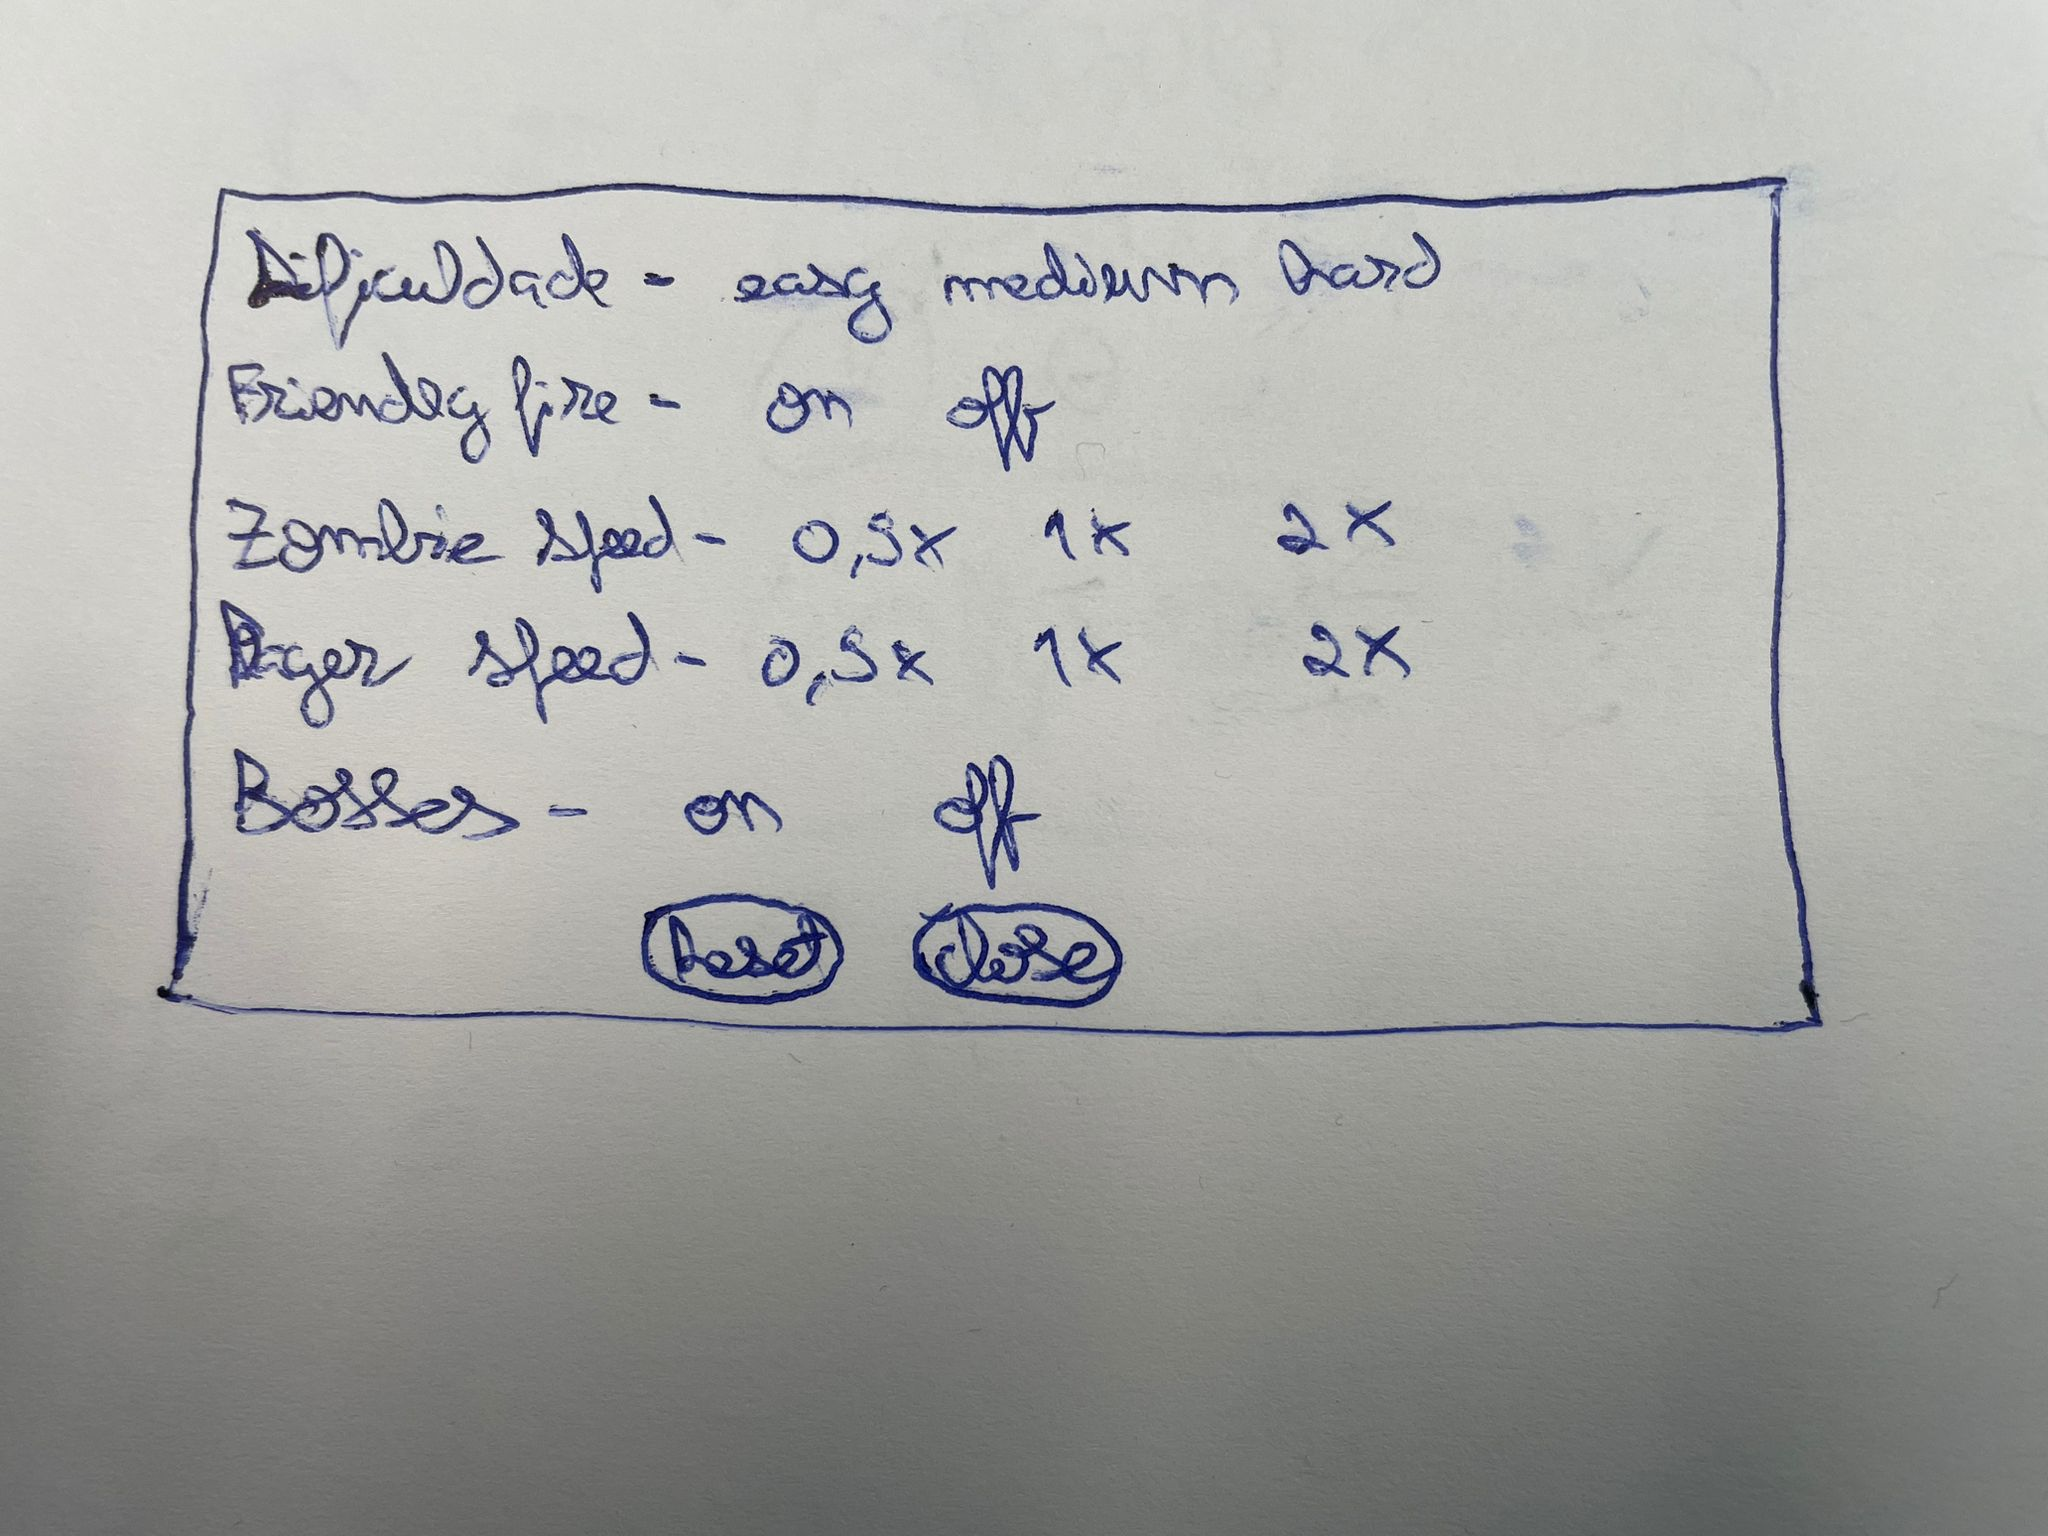 Dificuldade - easy medium hard
Friendly fire - on off
Zombie speed - 0,5x 1x 2x
speed - 0,5x 1x 2x
Bosses - on off
Reset close